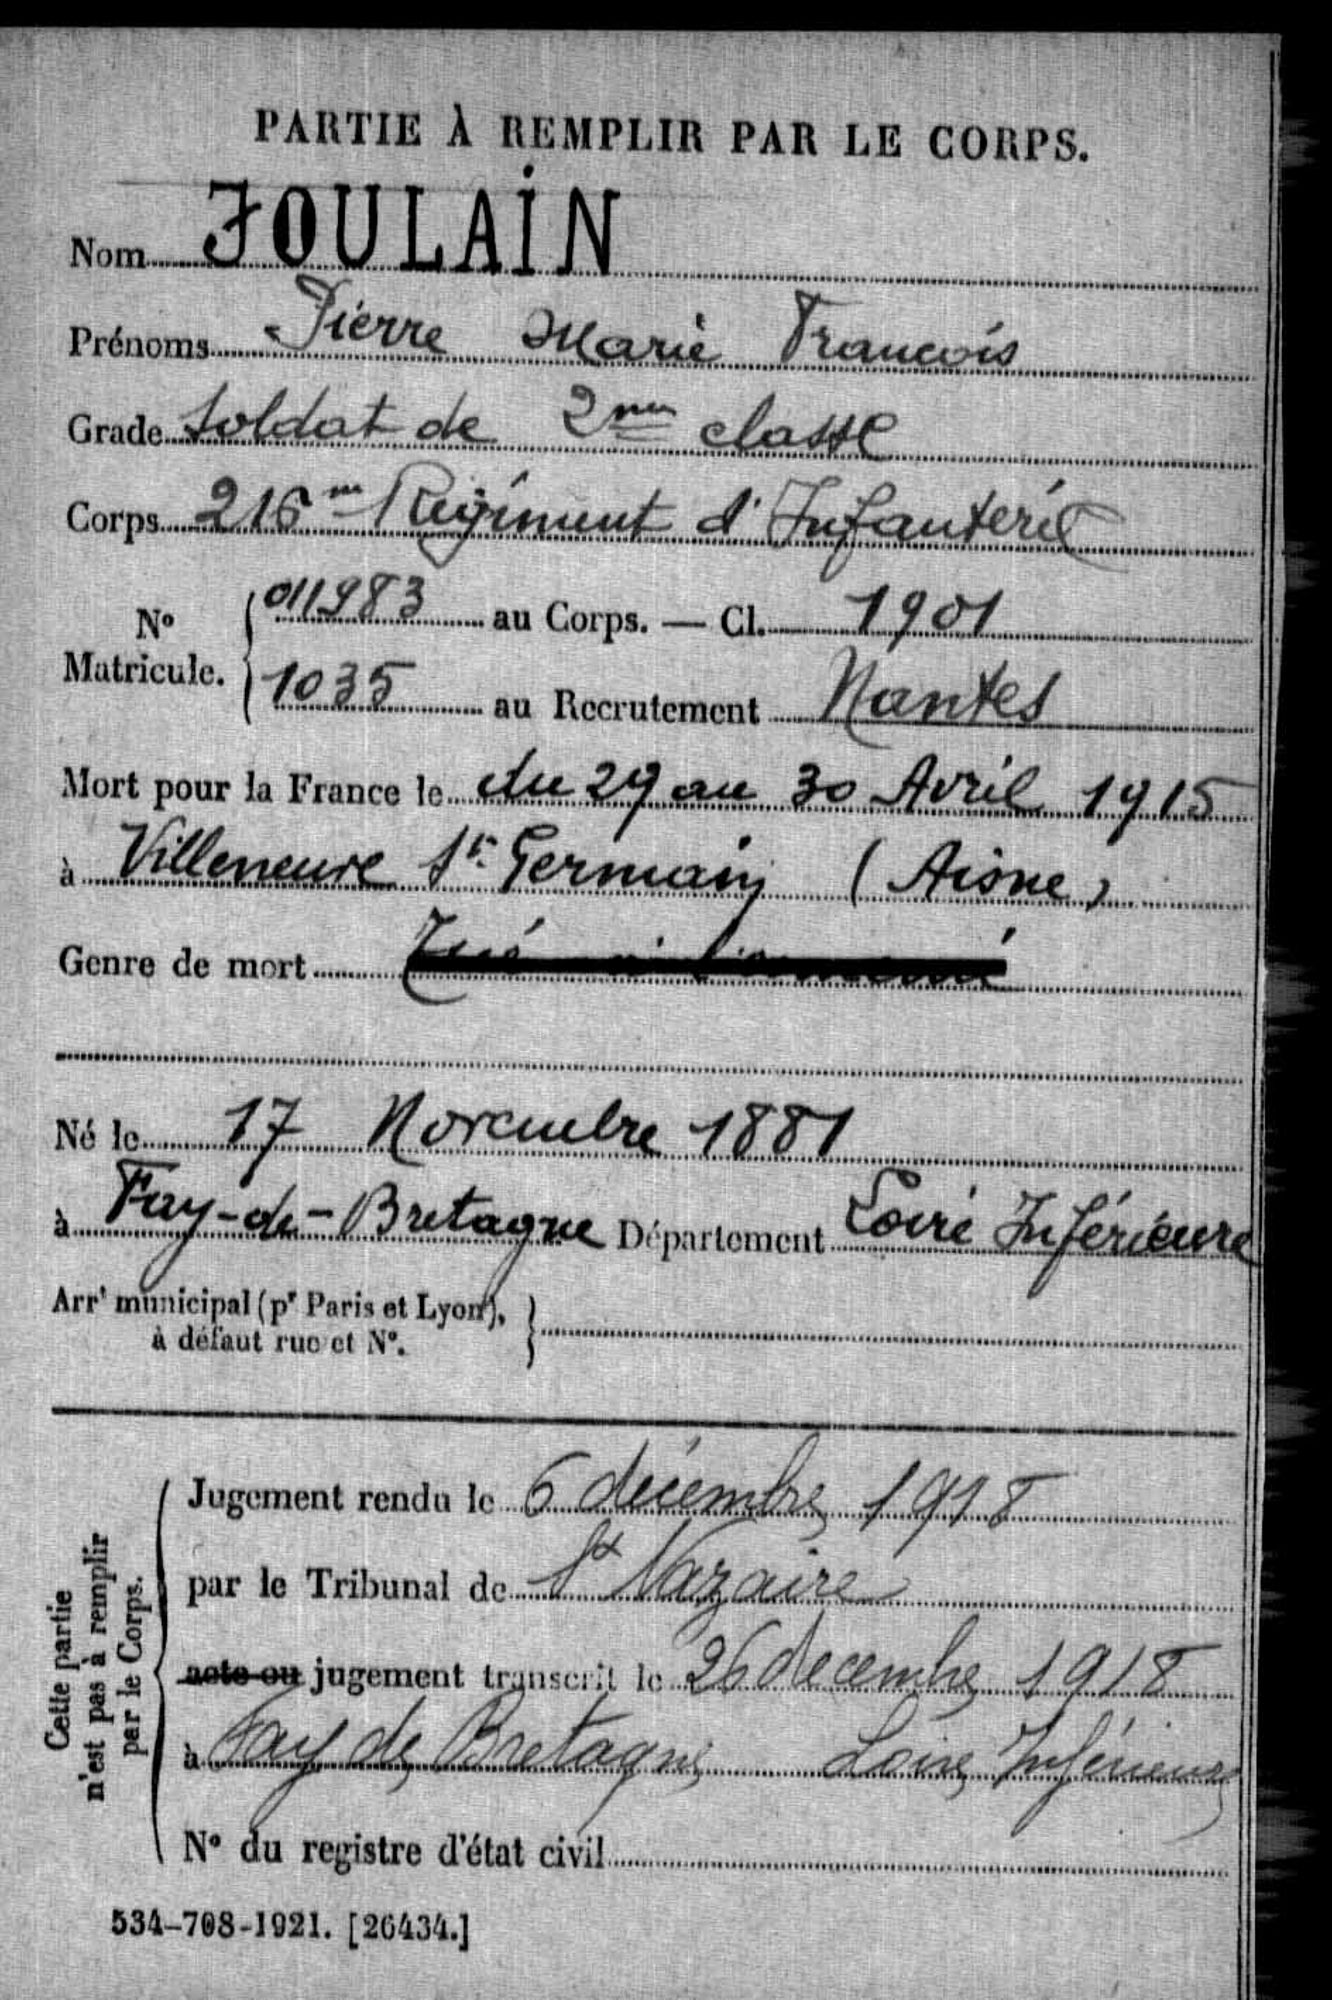 PARTIE À REMPLIR PAR LE CORPS.
Nom JOULAIN
Prénoms Pierre Marie François
Grade Soldat de 2me classe
Corps 216me Régiment d'Infanterie
No Matricule. 011983 au Corps. — Cl. 1901
1035 au Recrutement Nantes
Mort pour la France le du 29 au 30 Avril 1915
à Villeneuve St Germain (Aisne)
Genre de mort Tué
Né le 17 Novembre 1881
à Fay-de-Bretagne Département Loire Inférieure
Arrt municipal (pr Paris et Lyon),
à défaut rue et No.
Cette partie
n'est pas à remplir
par le Corps.
Jugement rendu le 6 décembre 1918
par le Tribunal de St Nazaire
acte ou jugement transcrit le 26 decembre 1918
à Fay de Bretagne Loire Inférieure
No du registre d'état civil
534-708-1921. [26434.]